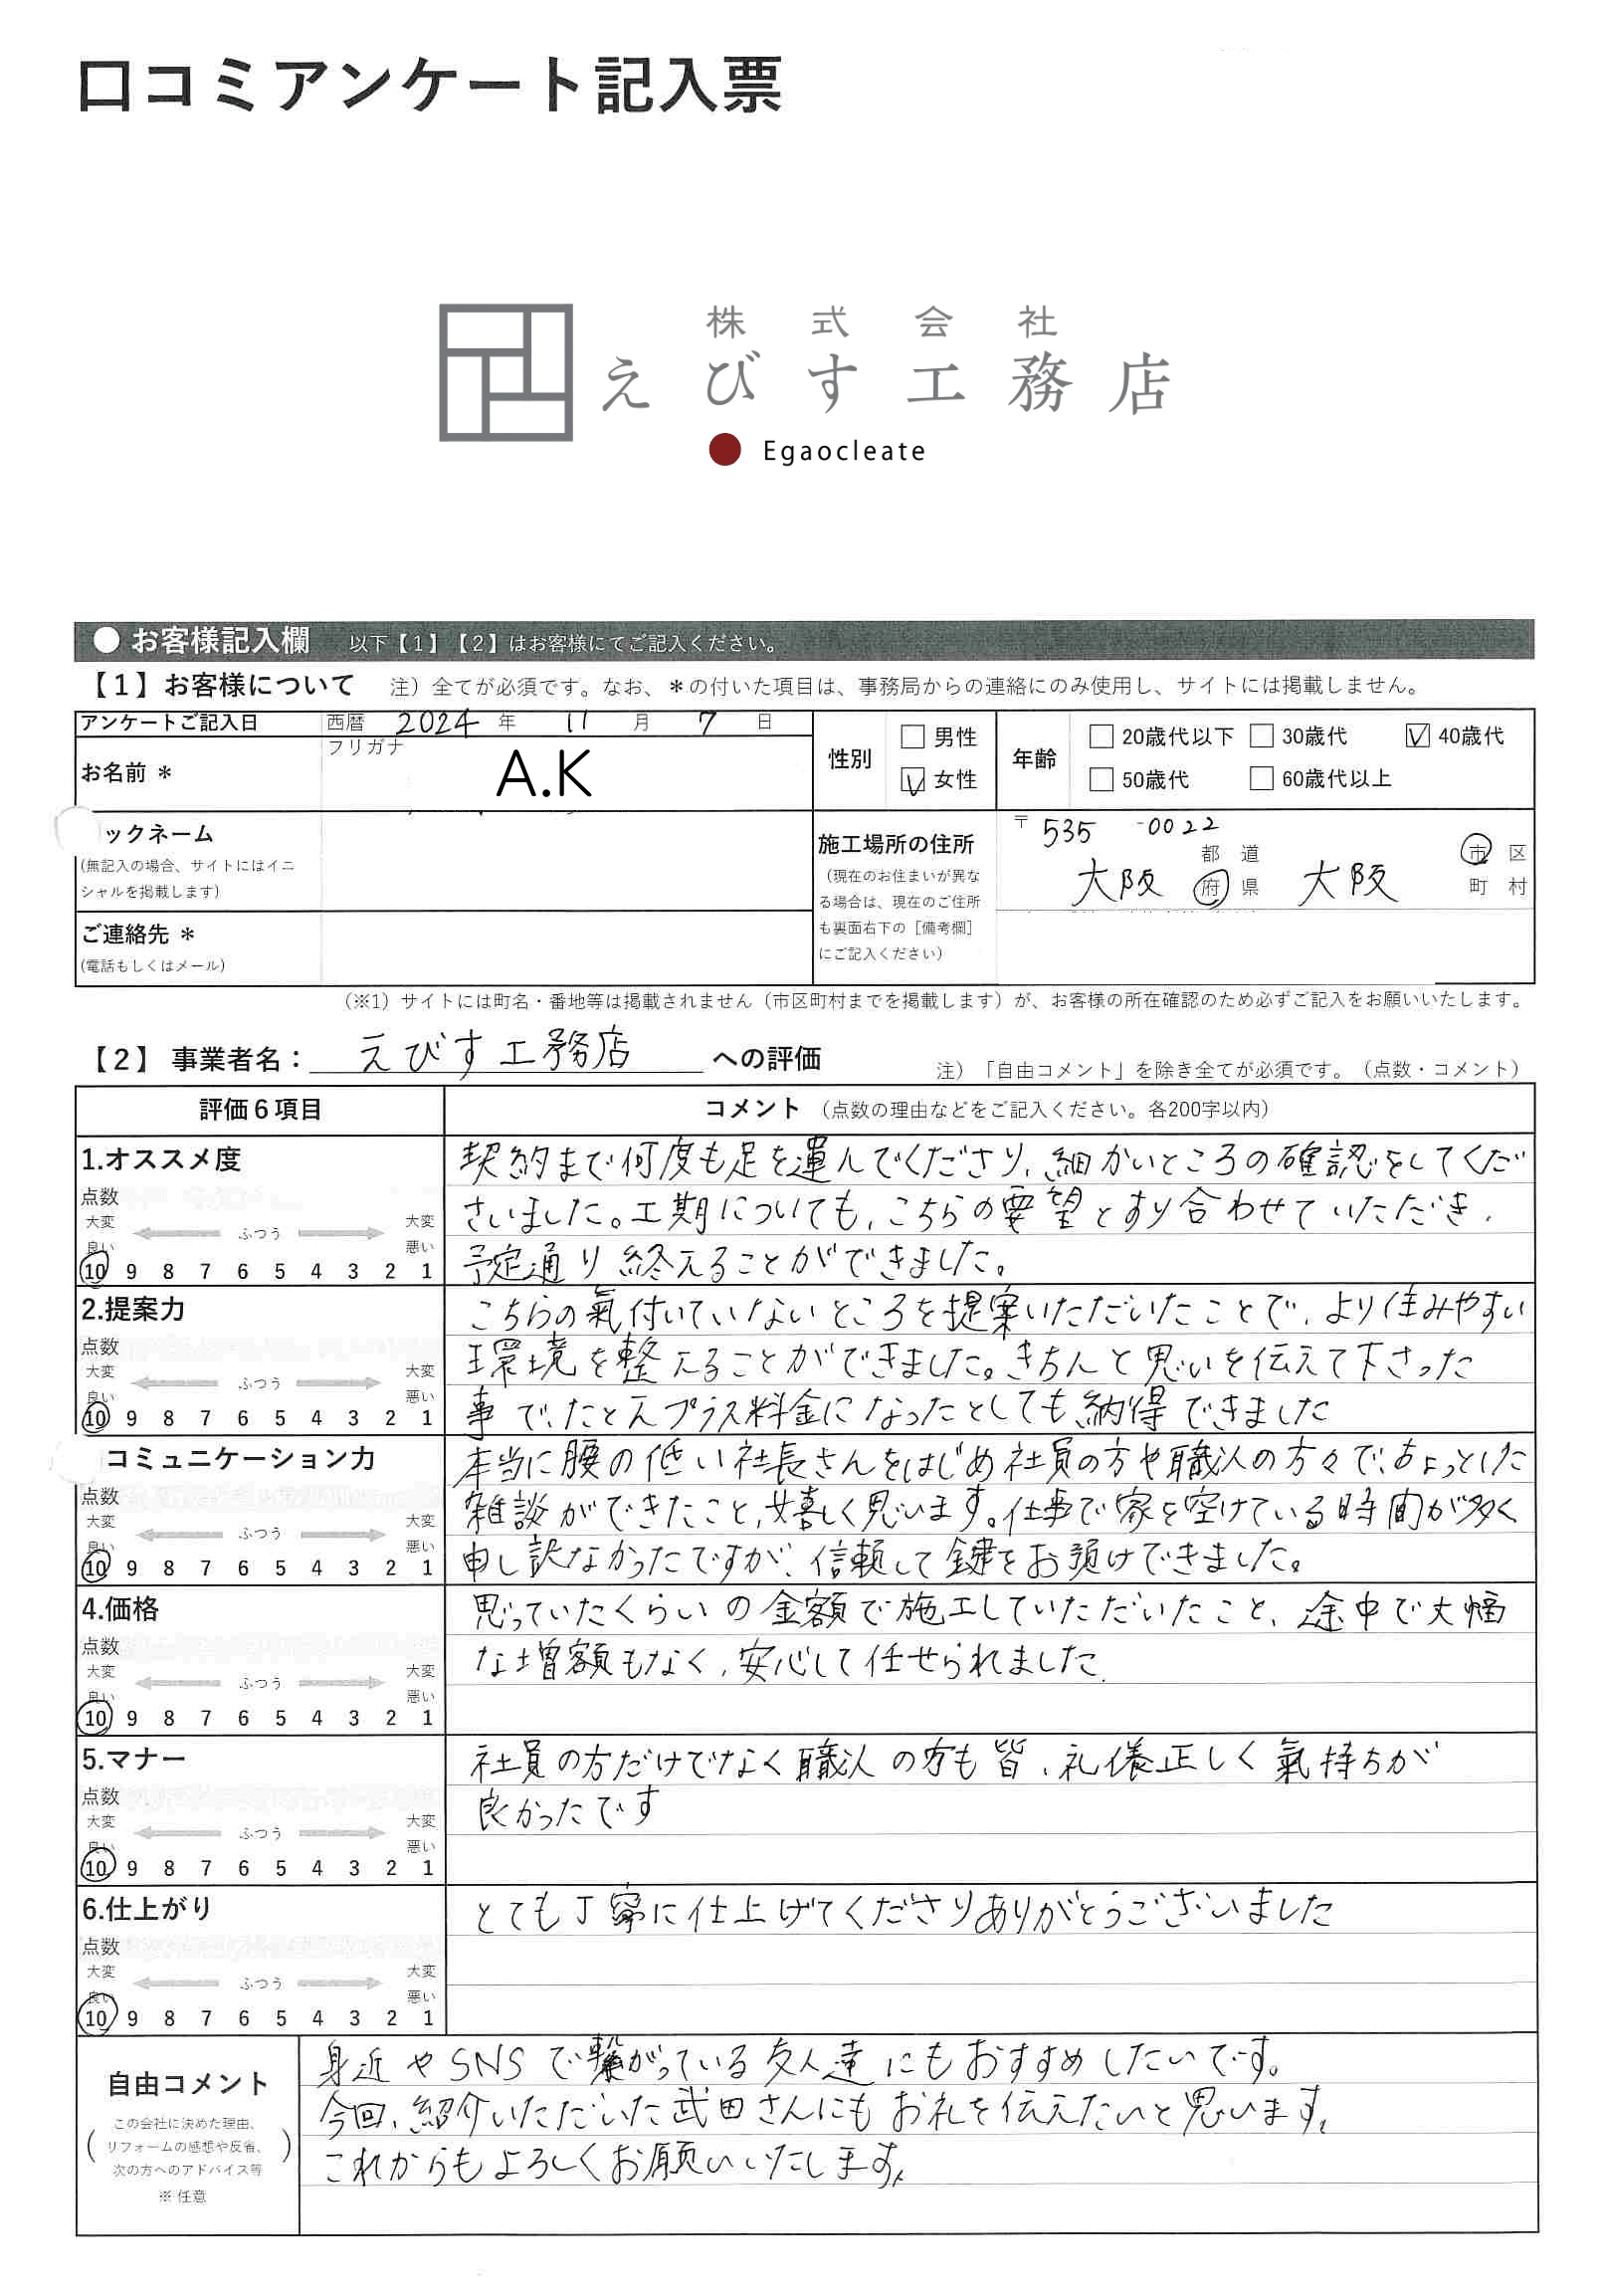 口コミアンケート記入票
株式会社
えびす工務店
Egaocleate
● お客様記入欄 以下【1】【2】はお客様にてご記入ください。
【1】お客様について 注）全てが必須です。なお、＊の付いた項目は、事務局からの連絡にのみ使用し、サイトには掲載しません。
アンケートご記入日 西暦 2024 年 11 月 7 日
お名前 ＊ フリガナ
A.K
性別 □ 男性
☑ 女性
年齢 □ 20歳代以下 □ 30歳代 ☑ 40歳代
□ 50歳代 □ 60歳代以上
ックネーム
(無記入の場合、サイトにはイニ
シャルを掲載します)
ご連絡先 ＊
(電話もしくはメール)
施工場所の住所
（現在のお住まいが異な
る場合は、現在のご住所
も裏面右下の［備考欄］
にご記入ください）
〒 535 -0022
都 道 市 区
大阪 府 県 大阪 町 村
（※1）サイトには町名・番地等は掲載されません（市区町村までを掲載します）が、お客様の所在確認のため必ずご記入をお願いいたします。
【2】 事業者名： えびす工務店 への評価 注）「自由コメント」を除き全てが必須です。（点数・コメント）
評価６項目 コメント （点数の理由などをご記入ください。各200字以内）
1.オススメ度
点数
大変 ふつう 大変
良い 悪い
10 9 8 7 6 5 4 3 2 1
契約まで何度も足を運んでくださり、細かいところの確認をしてくだ
さいました。工期についても、こちらの要望とすり合わせていただき、
予定通り終えることができました。
2.提案力
点数
大変 ふつう 大変
良い 悪い
10 9 8 7 6 5 4 3 2 1
こちらの氣付いていないところを提案いただいたことで、より住みやすい
環境を整えることができました。きちんと思いを伝えて下さった
事で、たとえプラス料金になったとしても納得できました
コミュニケーション力
点数
大変 ふつう 大変
良い 悪い
10 9 8 7 6 5 4 3 2 1
本当に腰の低い社長さんをはじめ社員の方や職人の方々で、ちょっとした
雑談ができたこと、嬉しく思います。仕事で家を空けている時間が多く
申し訳なかったですが、信頼して鍵をお預けできました。
4.価格
点数
大変 ふつう 大変
良い 悪い
10 9 8 7 6 5 4 3 2 1
思っていたくらいの金額で施工していただいたこと、途中で大幅
な増額もなく、安心して任せられました.
5.マナー
点数
大変 ふつう 大変
良い 悪い
10 9 8 7 6 5 4 3 2 1
社員の方だけでなく職人の方も皆、礼儀正しく氣持ちが
良かったです
6.仕上がり
点数
大変 ふつう 大変
良い 悪い
10 9 8 7 6 5 4 3 2 1
とても丁寧に仕上げてくださりありがとうございました
自由コメント
（この会社に決めた理由、
リフォームの感想や反省、
次の方へのアドバイス等）
※ 任意
身近やSNSで繋がっている友人達にもおすすめしたいです。
今回、紹介いただいた武田さんにもお礼を伝えたいと思います。
これからもよろしくお願いいたします。